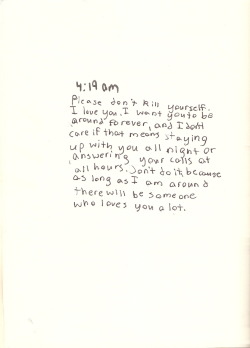 4:19 am
Please don't kill yourself.
I love you. I want you to be
around forever, and I don't
care if that means staying
up with you all night or
answering your calls at
all hours. Don't do it, because
as long as I am around
there will be someone
who loves you a lot.